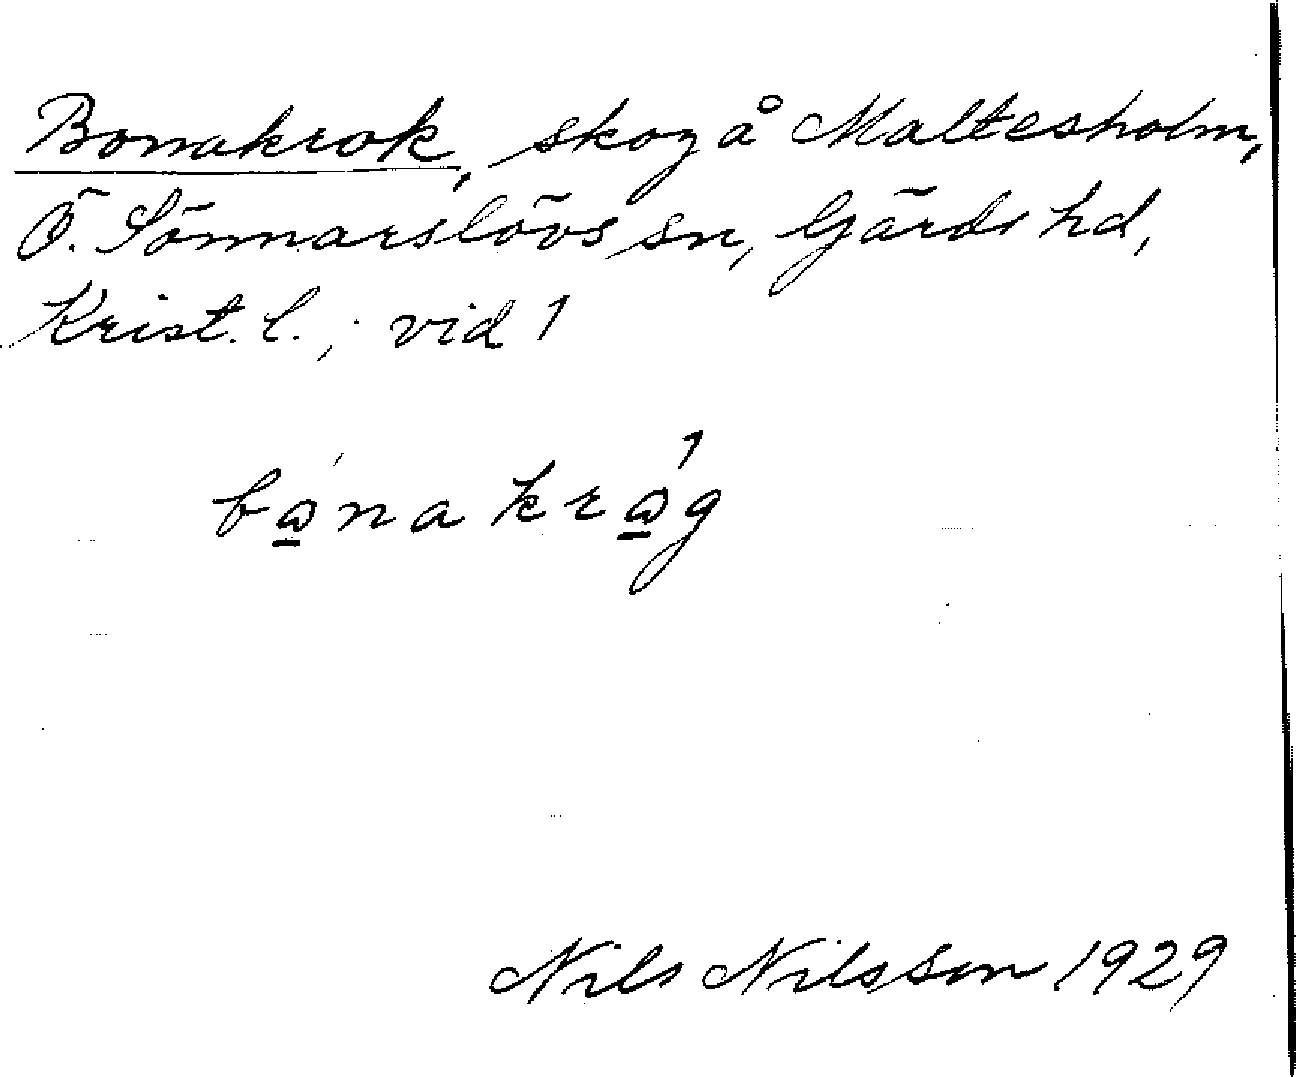 Bonakrok, skog å Maltesholm,
Ö. Sönnarslövs sn, Gärds hd,
Krist. l.; vid 1
bώ̱na krώ̱g
Nils Nilsson 1929